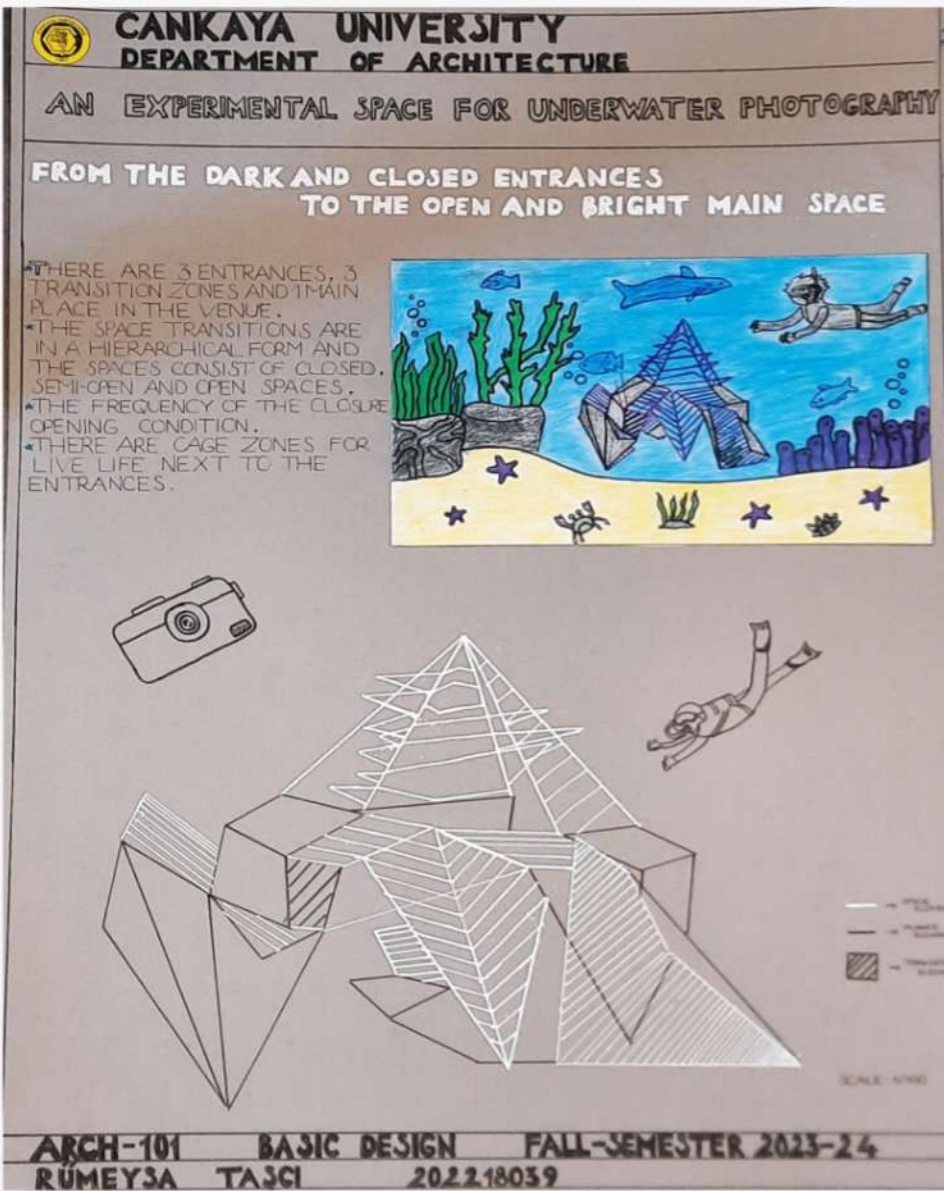 CANKAYA UNIVERSITY
DEPARTMENT OF ARCHITECTURE
AN EXPERIMENTAL SPACE FOR UNDERWATER PHOTOGRAPHY
FROM THE DARK AND CLOSED ENTRANCES
TO THE OPEN AND BRIGHT MAIN SPACE
*THERE ARE 3 ENTRANCES, 3
TRANSITION ZONES AND 1 MAIN
PLACE IN THE VENUE.
*THE SPACE TRANSITIONS ARE
IN A HIERARCHICAL FORM AND
THE SPACES CONSIST OF CLOSED,
SEMI-OPEN AND OPEN SPACES.
*THE FREQUENCY OF THE CLOSURE
OPENING CONDITION.
*THERE ARE CAGE ZONES FOR
LIVE LIFE NEXT TO THE
ENTRANCES.
SCALE: 1/100
ARCH-101 BASIC DESIGN FALL-SEMESTER 2023-24
RÜMEYSA TAŞCI 202218039